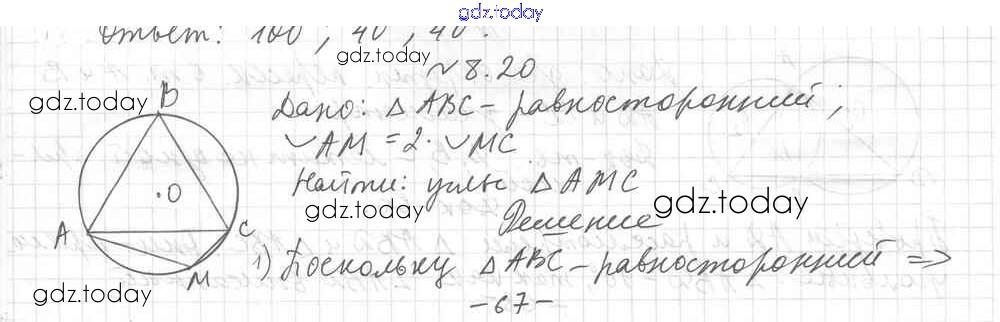 gdz.today
Ответ: 100°, 40°, 40°.
gdz.today
~ 8.20
gdz.today
B
Дано: △ ABC – равносторонний;
◡AM = 2 · ◡MC
Найти: углы △ AMC
·O
gdz.today
gdz.today
Решение
A
C
M
1) Поскольку △ ABC – равносторонний =>
gdz.today
–67–